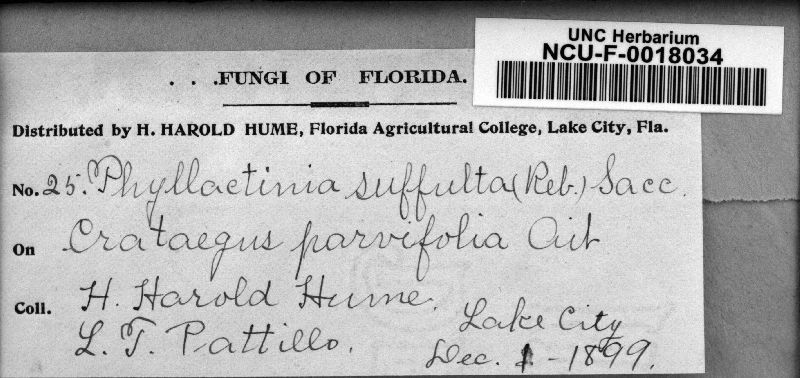 UNC Herbarium
NCU-F-0018034
. . .FUNGI OF FLORIDA.
Distributed by H. HAROLD HUME, Florida Agricultural College, Lake City, Fla.
No. 25. Phyllactinia suffulta (Reb.) Sacc.
On Crataegus parvifolia Ait
Coll. H. Harold Hume.
L. T. Pattillo.
Lake City
Dec. 1 - 1899.